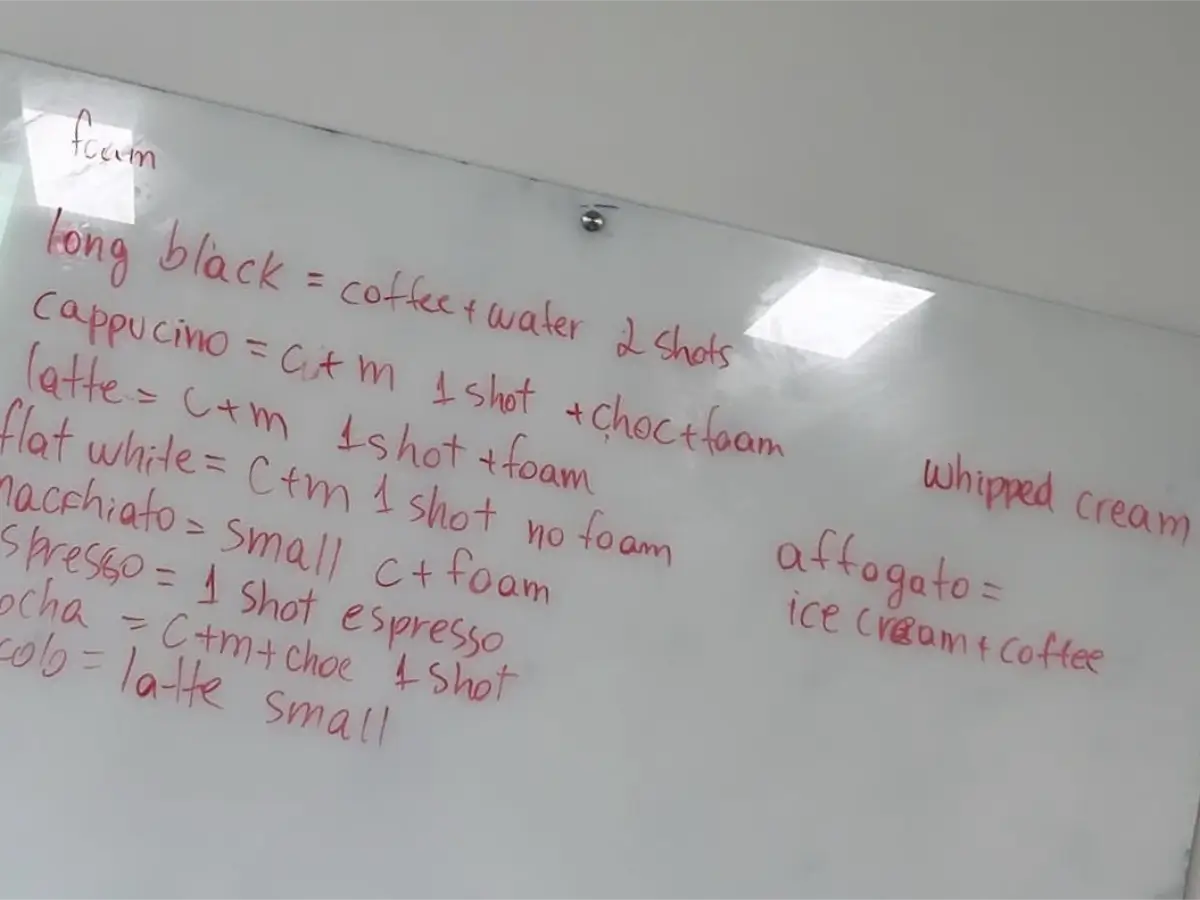 foam
long black = coffee + water 2 shots
cappucino = c + m 1 shot + choc + foam
latte = c + m 1 shot + foam
flat white = c + m 1 shot no foam
macchiato = small c + foam
spresso = 1 shot espresso
ocha = c + m + choc 1 shot
colo = latte small
whipped cream
affogato =
ice cream + coffee